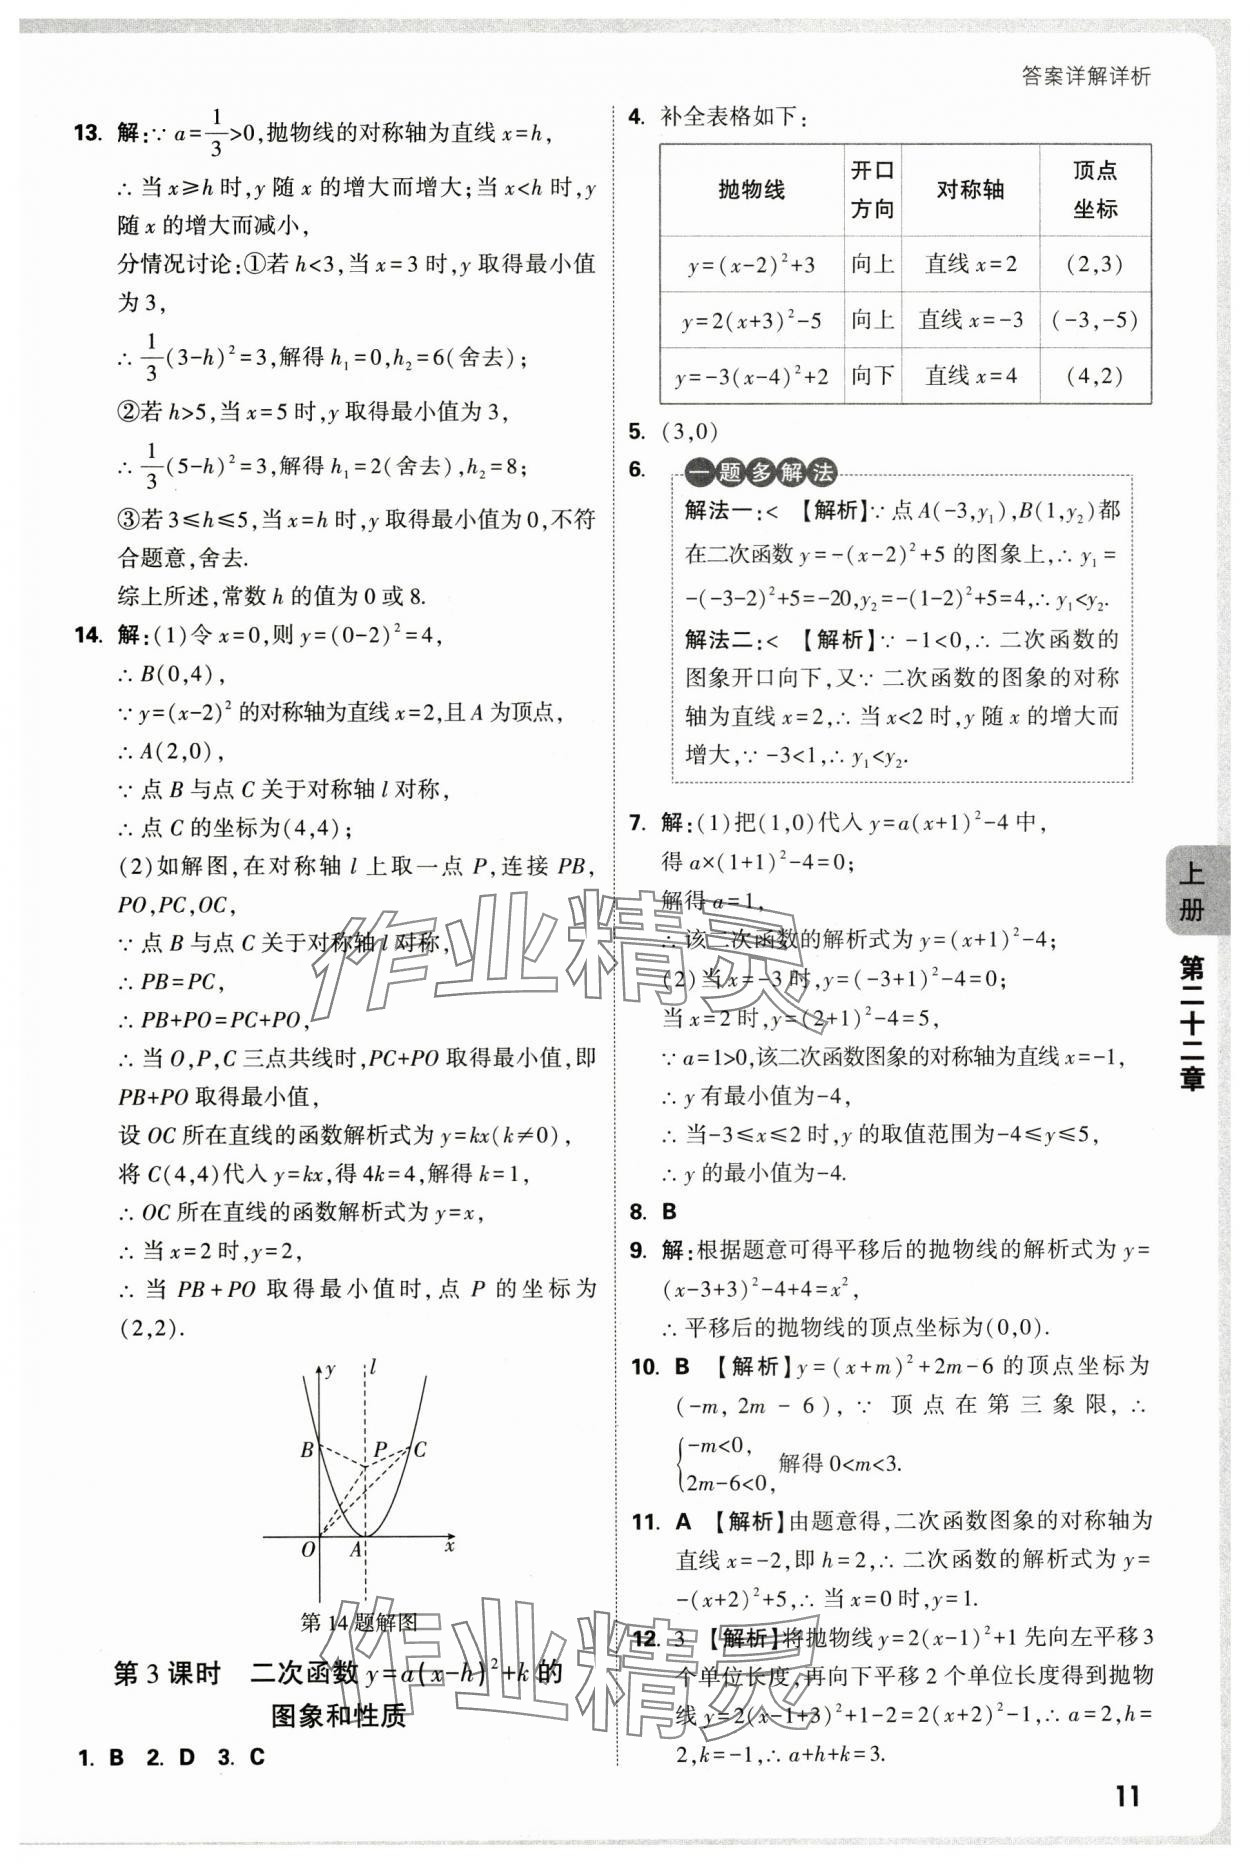 答案详解详析
13. 解:∵ a=1/3>0,抛物线的对称轴为直线 x=h,
∴ 当 x≥h 时,y 随 x 的增大而增大;当 x<h 时,y
随 x 的增大而减小,
分情况讨论:①若 h<3,当 x=3 时,y 取得最小值
为 3,
∴ 1/3(3-h)²=3,解得 h₁=0,h₂=6(舍去);
②若 h>5,当 x=5 时,y 取得最小值为 3,
∴ 1/3(5-h)²=3,解得 h₁=2(舍去),h₂=8;
③若 3≤h≤5,当 x=h 时,y 取得最小值为 0,不符
合题意,舍去.
综上所述,常数 h 的值为 0 或 8.
14. 解:(1)令 x=0,则 y=(0-2)²=4,
∴ B(0,4),
∵ y=(x-2)² 的对称轴为直线 x=2,且 A 为顶点,
∴ A(2,0),
∵ 点 B 与点 C 关于对称轴 l 对称,
∴ 点 C 的坐标为(4,4);
(2)如解图,在对称轴 l 上取一点 P,连接 PB,
PO,PC,OC,
∵ 点 B 与点 C 关于对称轴 l 对称,
∴ PB=PC,
∴ PB+PO=PC+PO,
∴ 当 O,P,C 三点共线时,PC+PO 取得最小值,即
PB+PO 取得最小值,
设 OC 所在直线的函数解析式为 y=kx(k≠0),
将 C(4,4)代入 y=kx,得 4k=4,解得 k=1,
∴ OC 所在直线的函数解析式为 y=x,
∴ 当 x=2 时,y=2,
∴ 当 PB+PO 取得最小值时,点 P 的坐标为
(2,2).
y l
B P C
O A x
第 14 题解图
第 3 课时 二次函数 y=a(x-h)²+k 的
图象和性质
1. B 2. D 3. C
4. 补全表格如下:
抛物线 开口方向 对称轴 顶点坐标
y=(x-2)²+3 向上 直线 x=2 (2,3)
y=2(x+3)²-5 向上 直线 x=-3 (-3,-5)
y=-3(x-4)²+2 向下 直线 x=4 (4,2)
5. (3,0)
6. 一题多解法
解法一:< 【解析】∵ 点 A(-3,y₁),B(1,y₂)都
在二次函数 y=-(x-2)²+5 的图象上,∴ y₁=
-(-3-2)²+5=-20,y₂=-(1-2)²+5=4,∴ y₁<y₂.
解法二:< 【解析】∵ -1<0,∴ 二次函数的
图象开口向下,又∵ 二次函数的图象的对称
轴为直线 x=2,∴ 当 x<2 时,y 随 x 的增大而
增大,∵ -3<1,∴ y₁<y₂.
7. 解:(1)把(1,0)代入 y=a(x+1)²-4 中,
得 a×(1+1)²-4=0;
解得 a=1,
∴ 该二次函数的解析式为 y=(x+1)²-4;
(2)当 x=-3 时,y=(-3+1)²-4=0;
当 x=2 时,y=(2+1)²-4=5,
∵ a=1>0,该二次函数图象的对称轴为直线 x=-1,
∴ y 有最小值为-4,
∴ 当-3≤x≤2 时,y 的取值范围为-4≤y≤5,
∴ y 的最小值为-4.
8. B
9. 解:根据题意可得平移后的抛物线的解析式为 y=
(x-3+3)²-4+4=x²,
∴ 平移后的抛物线的顶点坐标为(0,0).
10. B 【解析】y=(x+m)²+2m-6 的顶点坐标为
(-m, 2m-6), ∵ 顶点在第三象限, ∴
{-m<0, 2m-6<0, 解得 0<m<3.
11. A 【解析】由题意得,二次函数图象的对称轴为
直线 x=-2,即 h=2,∴ 二次函数的解析式为 y=
-(x+2)²+5,∴ 当 x=0 时,y=1.
12. 3 【解析】将抛物线 y=2(x-1)²+1 先向左平移 3
个单位长度,再向下平移 2 个单位长度得到抛物
线 y=2(x-1+3)²+1-2=2(x+2)²-1,∴ a=2,h=
2,k=-1,∴ a+h+k=3.
上册
第二十二章
11
作业精灵
作业精灵